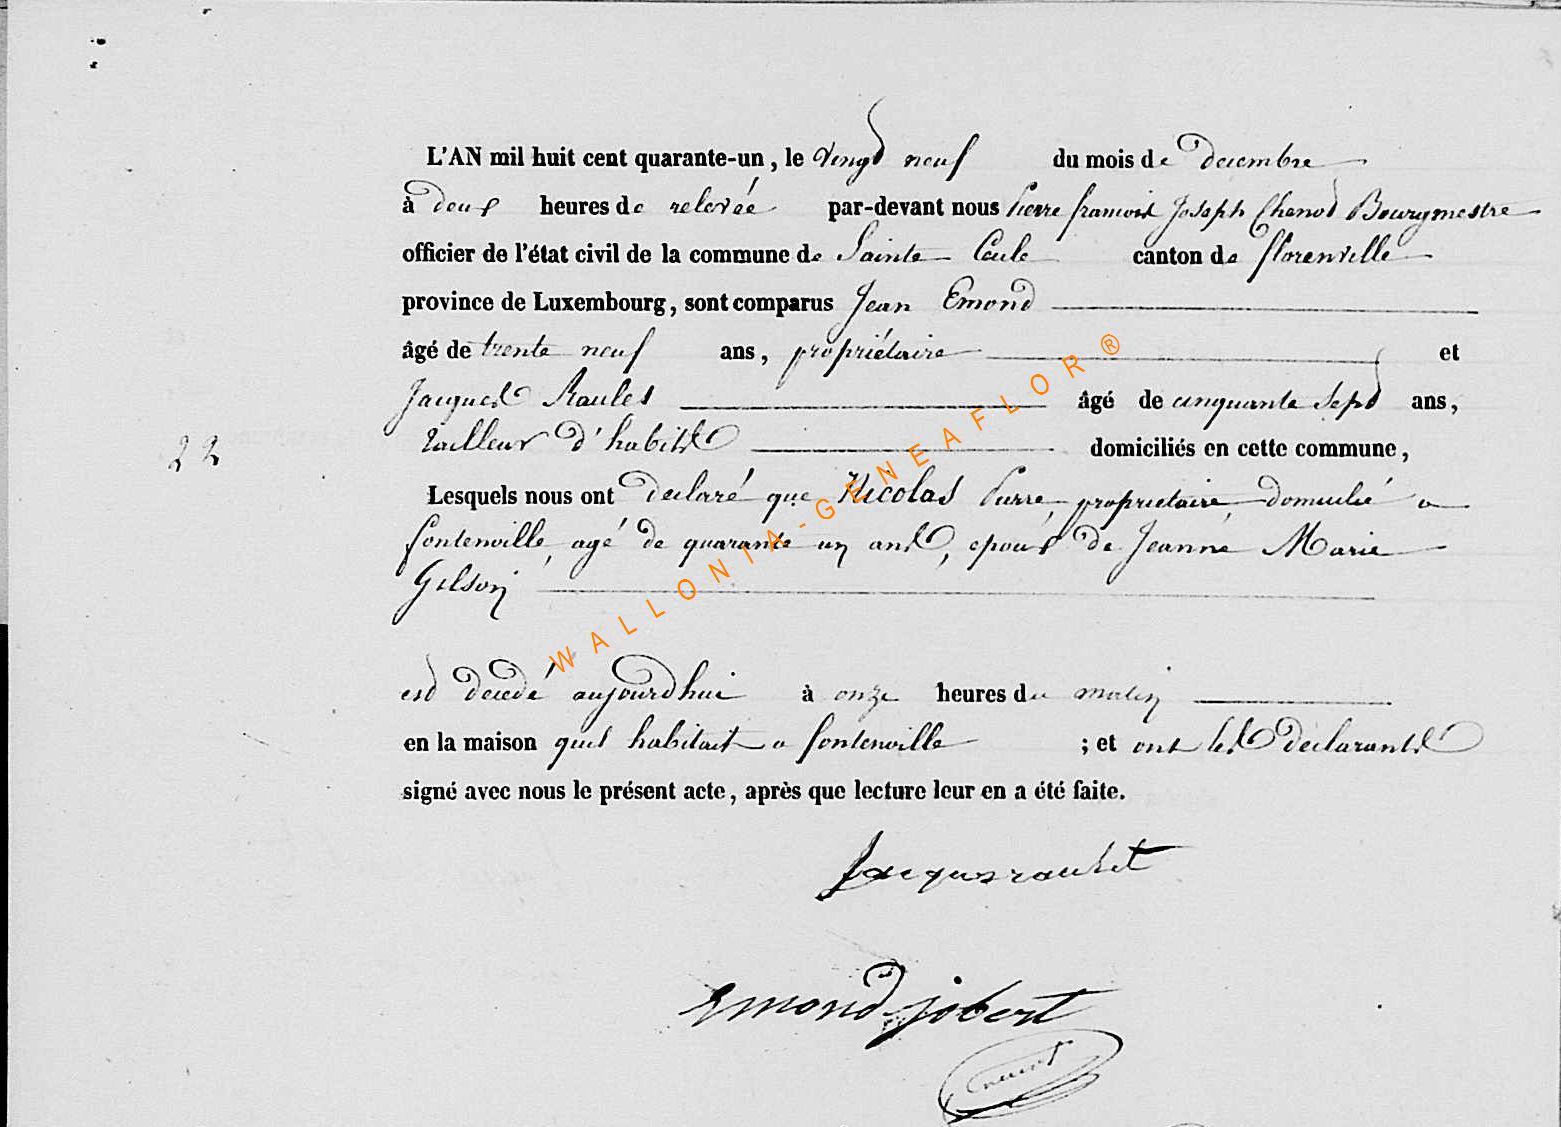 L'AN mil huit cent quarante-un, le vingt neuf du mois de decembre
à deux heures de relevée par-devant nous Pierre francois Joseph Chenot Bourgmestre
officier de l'état civil de la commune de Sainte Cecile canton de florenville
province de Luxembourg, sont comparus Jean Emond
âgé de trente neuf ans, propriétaire et
Jacques Raulet âgé de cinquante sept ans,
tailleur d'habits domiciliés en cette commune,
22
Lesquels nous ont declaré que Nicolas Pierre, proprietaire domicilié a
fontenoille, agé de quarante un ans, epoux de Jeanne Marie
Gilson
est decedé aujourdhui à onze heures du matin
en la maison quil habitait a fontenoille ; et ont les déclarants
signé avec nous le présent acte, après que lecture leur en a été faite.
Jacques raulet
Emond jobert
WALLONIA-GENEAFLOR®